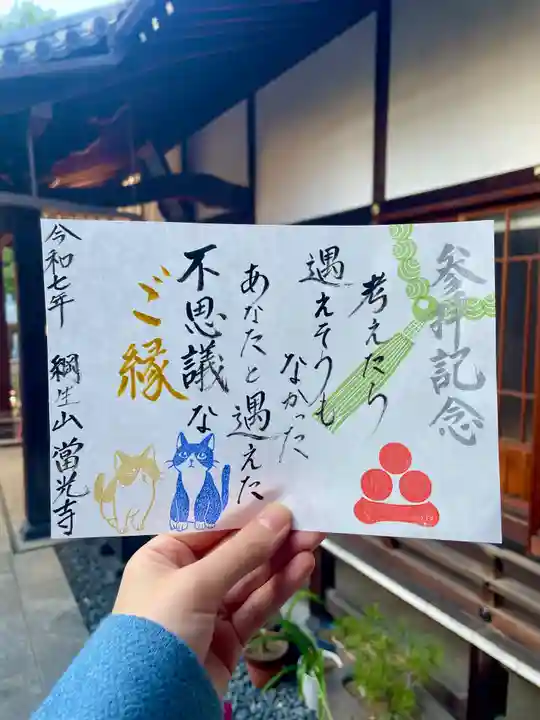 参拝記念
考えたら
遇えそうも
なかった
あなたと遇えた
不思議な
ご縁
令和七年 綱生山 當光寺